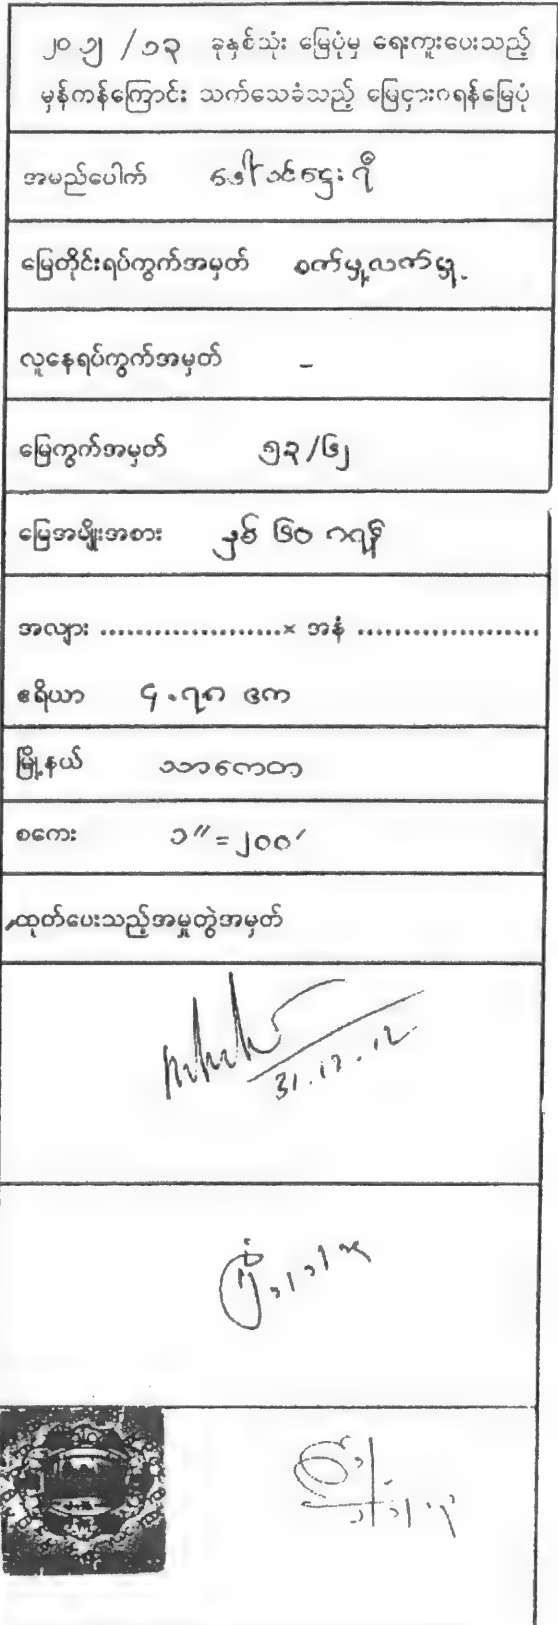 ၂၀၁၂ / ၁၃ ခုနှစ်သုံး မြေပုံမှ ရေးကူးပေးသည့်
မှန်ကန်ကြောင်း သက်သေခံသည့် မြေငှားဂရန်မြေပုံ
အမည်ပေါက် ဒေါ်ခင်ဌေးရီ
မြေတိုင်းရပ်ကွက်အမှတ် စက်မှုလက်မှု
လူနေရပ်ကွက်အမှတ် -
မြေကွက်အမှတ် ၅၃/၆၂
မြေအမျိုးအစား နှစ် ၆၀ ဂရန်
အလျား ..................... × အနံ .....................
ဧရိယာ ၄.၇၈ ဧက
မြို့နယ် သာကေတ
စကေး ၁" = ၂၀၀'
ထုတ်ပေးသည့်အမှုတွဲအမှတ်
31.12.12